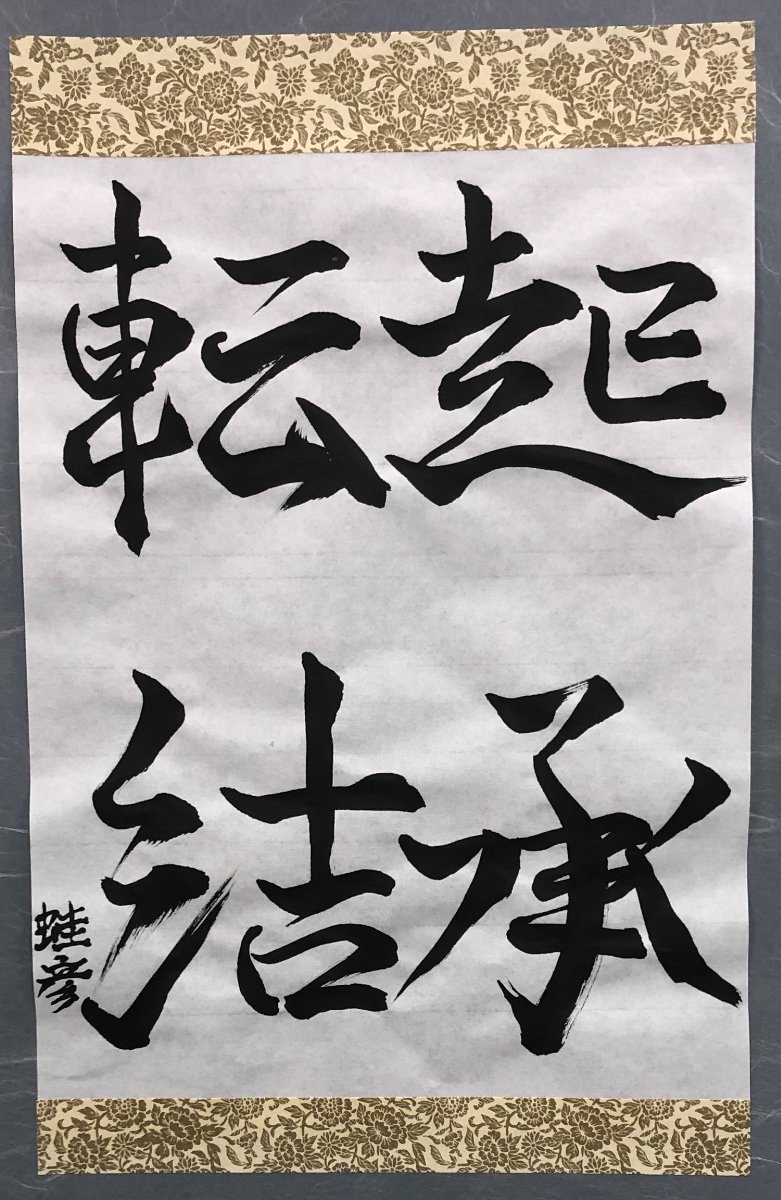 起承
転結
蛙彦